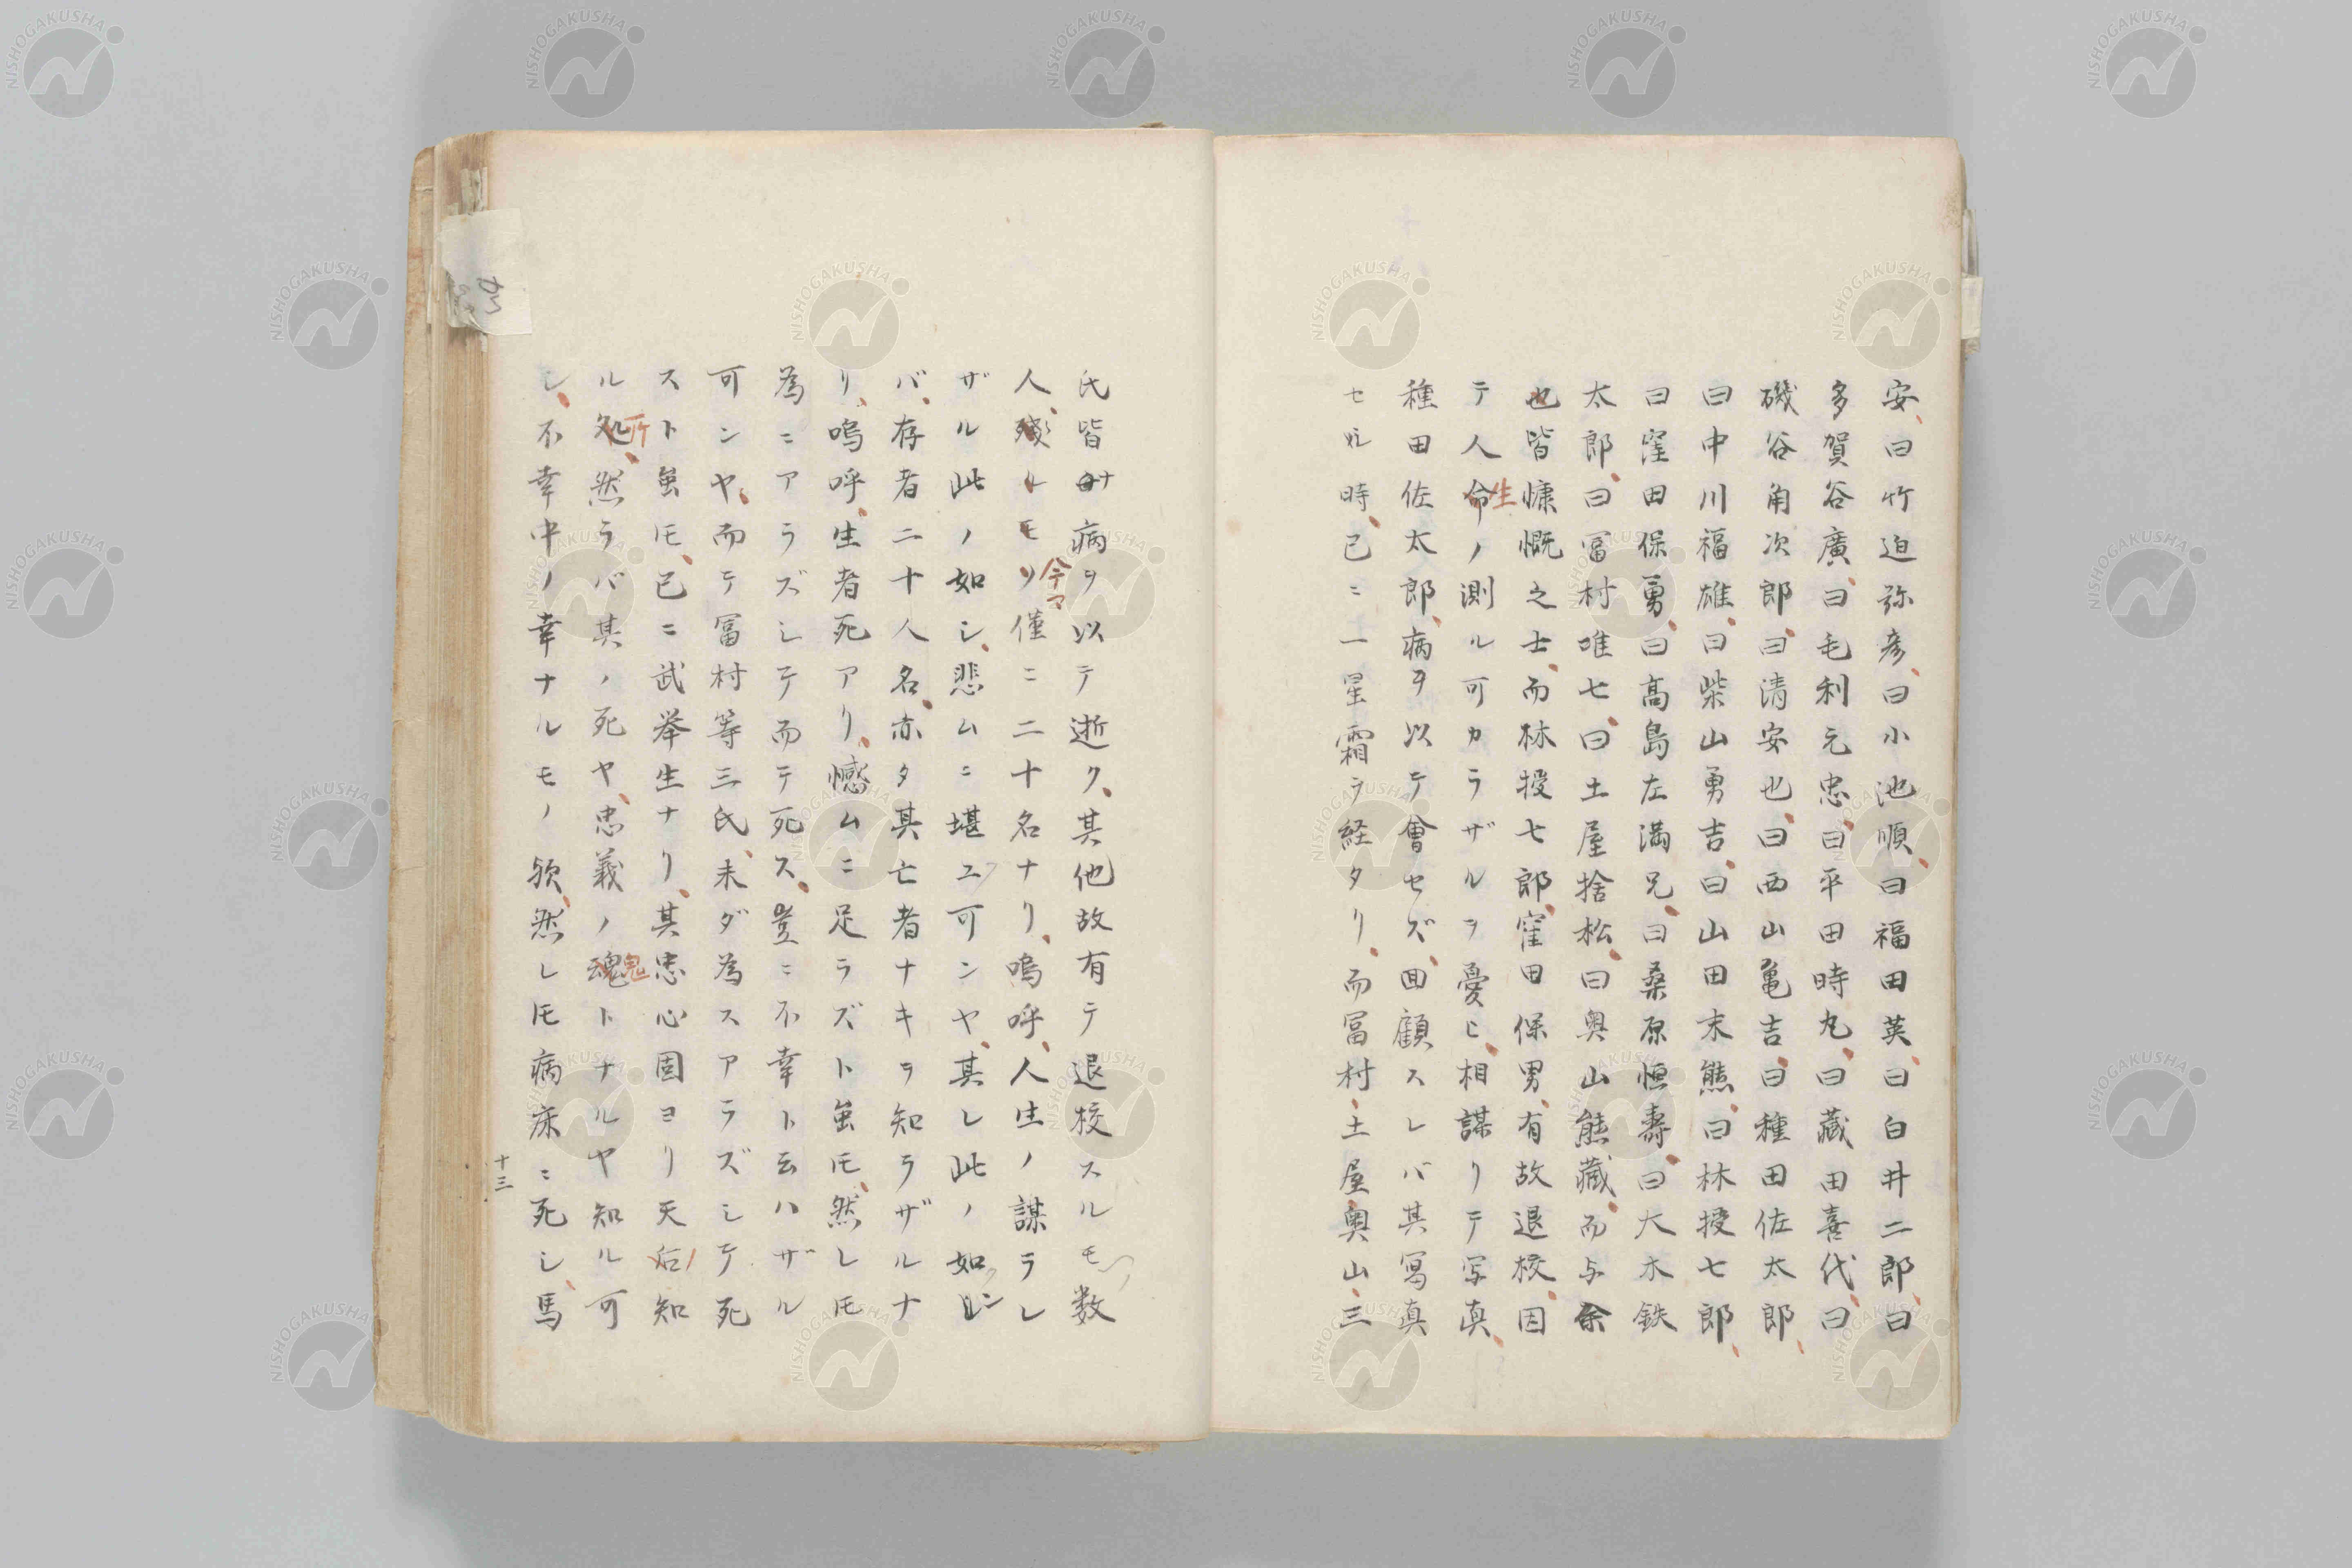 安、曰竹迫弥彦、曰小池順、曰福田英、曰白井二郎、曰
多賀谷廣、曰毛利元忠、曰平田時丸、曰蔵田喜代、曰
磯谷角次郎、曰清安也、曰西山亀吉、曰種田佐太郎、
曰中川福雄、曰柴山勇吉、曰山田末熊、曰林授七郎、
曰窪田保勇、曰高島左満兄、曰桑原恒壽、曰大木鉄
太郎、曰冨村唯七、曰土屋捨松、曰奥山熊藏、而与余
也皆慷慨之士、而林授七郎、窪田保男、有故退校、因
テ人命生ノ測ル可カラザルヲ憂ヒ、相謀リテ写真、
種田佐太郎、病ヲ以テ會セズ、回顧スレバ其寫真
セル時、已ニ一星霜ヲ経タリ、而冨村、土屋、奥山、三
氏皆ナ病ヲ以テ逝ク、其他故有テ退校スルモ数
人、残ルモノ今マ僅ニ二十名ナリ、嗚呼、人生ノ謀ラレ
ザル此ノ如シ、悲ムニ堪ユ可ンヤ、其レ此ノ如クン
バ、存者二十人名、亦タ其亡者ナキヲ知ラザルナ
リ、嗚呼、生者死アリ、憾ムニ足ラズト虽モ、然レ㠪
為ニアラズシテ而テ死ス、豈ニ不幸ト云ハザル
可ンヤ、而テ冨村等三氏、未ダ為スアラズシテ死
スト虽㠪、已ニ武挙生ナリ、其忠心固ヨリ天后知
ル処所、然ラバ其ノ死ヤ、忠義ノ魂鬼トナルヤ知ル可
シ、不幸中ノ幸ナルモノ欤、然レ㠪病床ニ死シ、馬
十三
NISHOGAKUSHA